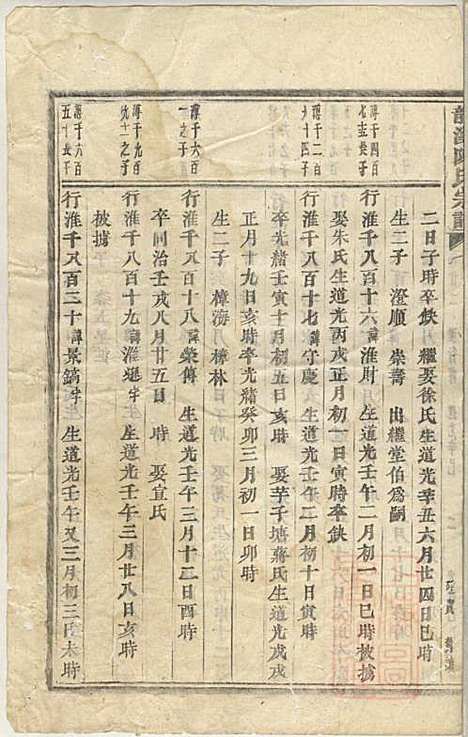 二日子時卒缺 繼娶徐氏生道光辛丑六月廿四日巳時
生二子 澄順 崇壽 出繼堂伯爲嗣
溥千四百
七圭長子
行淮千八百十六諱淮財 生道光壬午二月初一日巳時被擄
娶朱氏生道光丙戌正月初一日寅時卒缺
溥千二百
九十四子
行淮千八百十七諱守慶 生道光壬午二月初十日寅時
卒光緒壬寅十月初五日亥時 娶芋子塘蔣氏生道光戊戌
正月十九日亥時卒光緒癸卯三月初一日卯時
生二子 樟海 樟林
溥千六百
一之子
行淮千八百十八諱榮傳 生道光壬午三月十二日酉時
卒同治壬戌八月廿五日 時 娶宜氏
溥千九百
九十二之子
行淮千八百十九諱淮 字 生道光壬午三月廿八日亥時
被擄
溥千六百
五十長子
行淮千八百二十諱景鎬字 生道光壬午又三月初三日未時